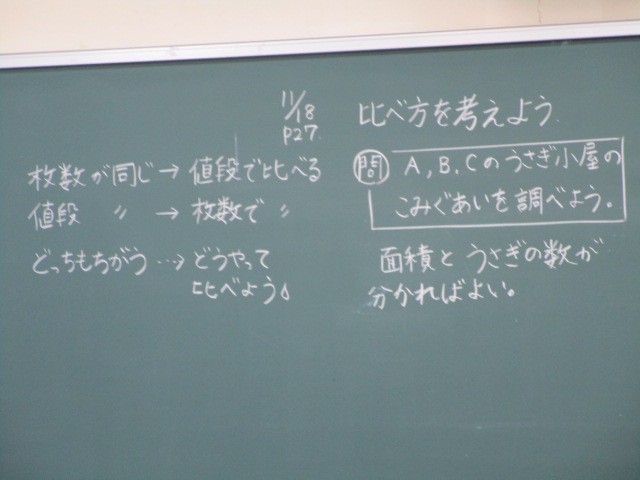 11/18
P27.
比べ方を考えよう
枚数が同じ→値段で比べる
値段 〃 →枚数で 〃
どっちもちがう…→どうやって
比べよう
問 A,B,Cのうさぎ小屋の
こみぐあいを調べよう。
面積とうさぎの数が
分かればよい。